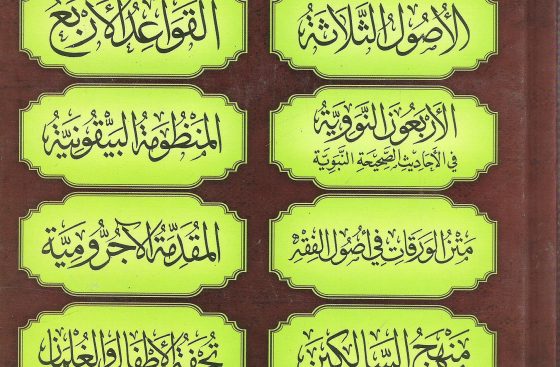 الأُصُولُ الثَّلَاثَةُ
القَوَاعِدُ الأَرْبَعُ
الأَرْبَعُونَ النَّوَوِيَّةُ
فِي الأَحَادِيثِ الصَّحِيحَةِ النَّبَوِيَّةِ
المَنْظُومَةُ البَيْقُونِيَّةُ
مَتْنُ الوَرَقَاتِ فِي أُصُولِ الفِقْهِ
المُقَدِّمَةُ الآجُرُّومِيَّةُ
مَنْهَجُ السَّالِكِينَ
تُحْفَةُ الأَطْفَالِ وَالغِلْمَانِ